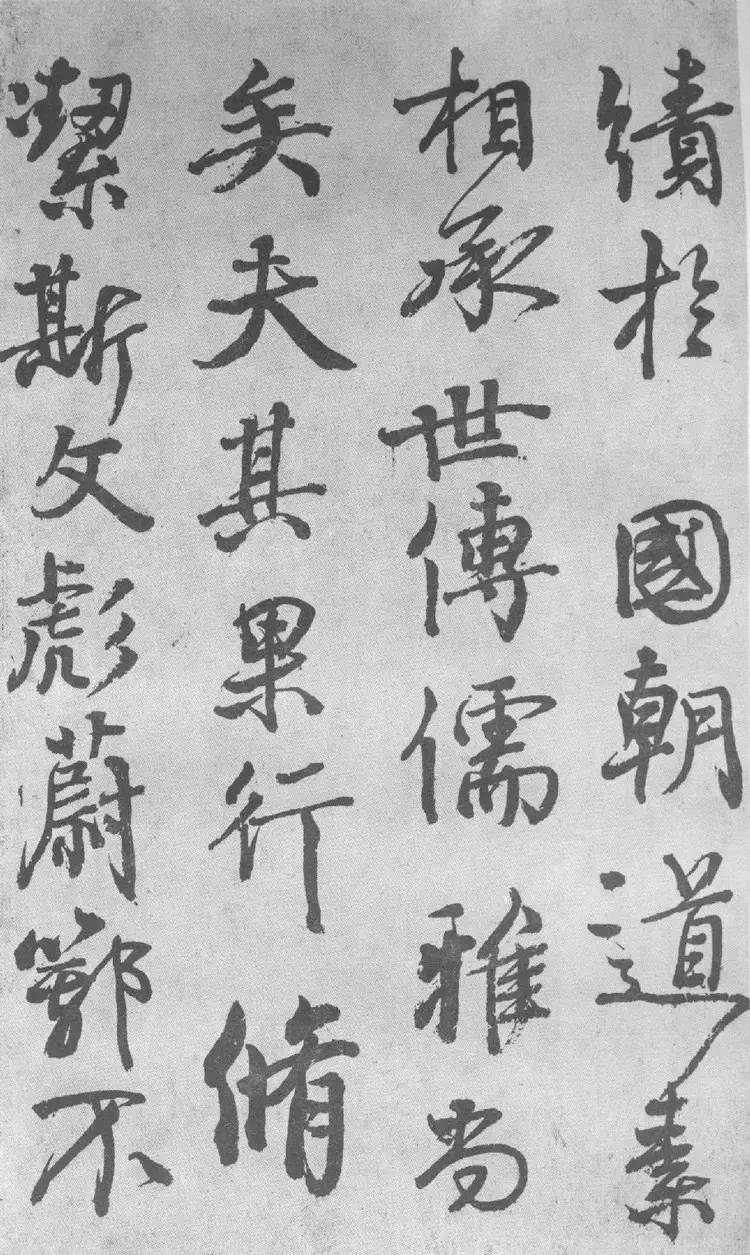 績於國朝道素
相承世傳儒雅尚
矣夫其果行脩
潔斯文彪蔚鄂不